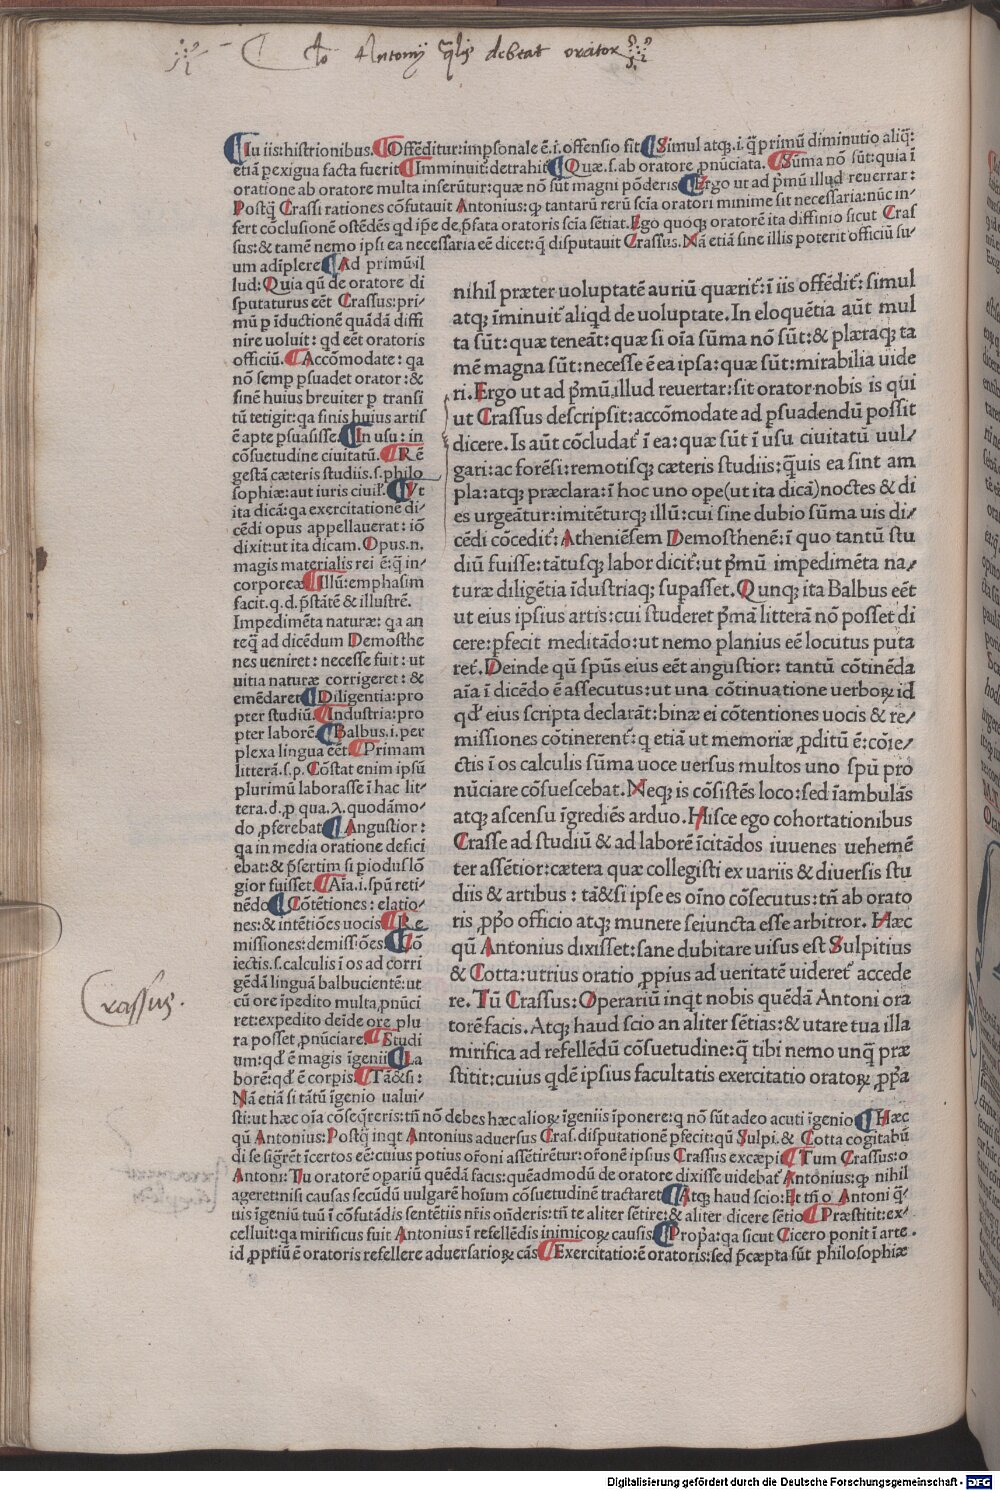 Antonij q̃lis debeat orator
Iu iis: histrionibus. Offẽditur: impsonale ẽ. i. offensio fit Simul atq;. i. q̃ primũ diminutio aliq̃:
etiã pexigua facta fuerit Imminuit: detrahit Quæ. s. ab oratore ꝓnũciata. Sũma nõ sũt: quia ĩ
oratione ab oratore multa inserũtur: quæ nõ sũt magni põderis Ergo ut ad p̃mũ illud reuerrar:
Postq̃ Crassi rationes cõfutauit Antonius: ꝙ tantarũ rerũ scĩa oratori minime sit necessaria: nũc in/
fert cõclusionẽ ostẽdẽs qd ip̃e de p̃fata oratoris scĩa sẽtiat. Ego quoq; oratorẽ ita diffinio sicut Cras
sus: & tamẽ nemo ipsi ea necessaria eẽ dicet: q̃ disputauit Crassus. Nã etiã sine illis poterit officiũ su/
um adĩplere Ad primũ il
lud: Quia qũ de oratore di
sputaturus eẽt Crassus: pri/
mũ p ĩductionẽ quãdã diffi
nire uoluit: qd eẽt oratoris
officiũ. Accõmodate: qa
nõ semp psuadet orator: &
finẽ huius breuiter p transi
tũ tetigit: qa finis huius artis
ẽ apte psuasisse. In usu: in
cõsuetudine ciuitatũ. Rẽ
gestã cæteris studiis. s. philo
sophiæ: aut iuris ciuil'. Vt
ita dicã: qa exercitationẽ di/
cẽdi opus appellauerat: iõ
dixit: ut ita dicam. Opus. n.
magis materialis rei ẽ: q̃ in/
corporeæ Illũ: emphasim
facit. q. d. p̃stãtẽ & illustrẽ.
Impedimẽta naturæ: qa an
teq̃ ad dicẽdum Demosthe
nes ueniret: necesse fuit: ut
uitia naturæ corrigeret: &
emẽdaret Diligentia: pro
pter studiũ. Industria: pro
pter laborẽ Balbus. i. per
plexa lingua eẽt. Primam
litterã. s. p. Cõstat enim ipsũ
plurimũ laborasse ĩ hac lit/
tera. d. ꝓ qua. λ. quodãmo/
do ꝓferebat Angustior:
qa in media oratione defici
ebat: & p̃sertim si piodus lõ
gior fuisset. Aĩa. i. spũ reti/
nẽdo Cõtẽtiones: elatio/
nes: & intẽtiões uocis Re
missiones: demissiões. Cõ
iectis. s. calculis ĩ os ad corri
gẽdã linguã balbucientẽ: ut
cũ ore ĩpedito multa ꝓnũci
ret: expedito deĩde ore plu
ra posset ꝓnũciare. Studi
um: qd' ẽ magis ĩgenii La
borẽ: qd' ẽ corpis Tã&si:
Nã etiã si tãtũ ĩgenio ualui/
nihil præter uoluptatẽ auriũ quærit̃: ĩ iis offẽdit̃: simul
atq; ĩminuit̃ aliqd de uoluptate. In eloquẽtia aũt mul
ta sũt: quæ teneãt: quæ si oĩa sũma nõ sũt: & plæraq; ta
mẽ magna sũt: necesse ẽ ea ipsa: quæ sũt: mirabilia uide
ri. Ergo ut ad p̃mũ illud reuertar: sit orator nobis is qui
ut Crassus descripsit: accõmodate ad psuadendũ possit
dicere. Is aũt cõcludat̃ ĩ ea: quæ sũt ĩ usu ciuitatũ uul/
gari: ac forẽsi: remotisq; cæteris studiis: q̃uis ea sint am
pla: atq; præclara: ĩ hoc uno ope (ut ita dicã) noctes & di
es urgeãtur: imitẽturq; illũ: cui sine dubio sũma uis di/
cẽdi cõcedit̃: Atheniẽsem Demosthenẽ: ĩ quo tantũ stu
diũ fuisse: tãtusq; labor dicit̃: ut p̃mũ impedimẽta na/
turæ diligẽtia ĩdustriaq; supasset. Qunq; ita Balbus eẽt
ut eius ipsius artis: cui studeret p̃mã litterã nõ posset di
cere: pfecit meditãdo: ut nemo planius eẽ locutus puta
ret̃. Deinde qũ spũs eius eẽt angustior: tantũ cõtinẽda
aĩa ĩ dicẽdo ẽ assecutus: ut una cõtinuatione uerboꝝ id
qd' eius scripta declarãt: binæ ei cõtentiones uocis & re/
missiones cõtinerent̃: q etiã ut memoriæ ꝓditũ ẽ: cõie/
ctis ĩ os calculis sũma uoce uersus multos uno spũ pro
nũciare cõsuescebat. Neq; is cõsistẽs loco: sed ĩambulãs
atq; ascensu ĩgrediẽs arduo. Hisce ego cohortationibus
Crasse ad studiũ & ad laborẽ ĩcitãdos iuuenes uehemẽ
ter assẽtior: cætera quæ collegisti ex uariis & diuersis stu
diis & artibus: tã&si ipse es oĩno cõsecutus: tñ ab orato
ris ꝓp̃o officio atq; munere seiuncta esse arbitror. Hæc
qũ Antonius dixisset: sane dubitare uisus est Sulpitius
& Cotta: utrius oratio ꝓpius ad ueritatẽ uideret̃ accede
re. Tũ Crassus: Operariũ inqt nobis quẽdã Antoni ora
torẽ facis. Atq; haud scio an aliter sẽtias: & utare tua illa
mirifica ad refellẽdũ cõsuetudine: q̃ tibi nemo unq̃ præ
stitit: cuius qdẽ ipsius facultatis exercitatio oratoꝝ ꝓp̃a
Crassus.
sti: ut hæc oĩa cõseq̃reris: tñ nõ debes hæc alioꝝ ĩgeniis ĩponere: q nõ sũt adeo acuti ĩgenio Hæc
qũ Antonius: Postq̃ inqt Antonius aduersus Cras. disputationẽ pfecit: qũ Sulpi. & Cotta cogitabũ
di se sigr̃ẽt ĩcertos eẽ: cuius potius or̃oni assẽtirẽtur: or̃onẽ ipsius Crassus excæpit Tum Crassus: o
Antoni: Tu oratorẽ opariũ quẽdã facis: quẽadmodũ de oratore dixisse uidebat̃ Antonius: ꝙ nihil
ageret: nisi causas secũdũ uulgarẽ hoĩum cõsuetudinẽ tractaret Atq; haud scio: Et tñ o Antoni q̃/
uis ĩgeniũ tuũ ĩ cõfutãdis sentẽtiis nr̃is on̄deris: tñ te aliter sẽtire: & aliter dicere sẽtio Præstitit: ex/
celluit: qa mirificus fuit Antonius ĩ refellẽdis inimicoꝝ causis Prop̃a: qa sicut Cicero ponit ĩ arte.
id ꝓpriũ ẽ oratoris refellere aduersarioꝝ cãs Exercitatio: ẽ oratoris: sed p̃cæpta sũt philosophiæ
Digitalisierung gefördert durch die Deutsche Forschungsgemeinschaft - DFG